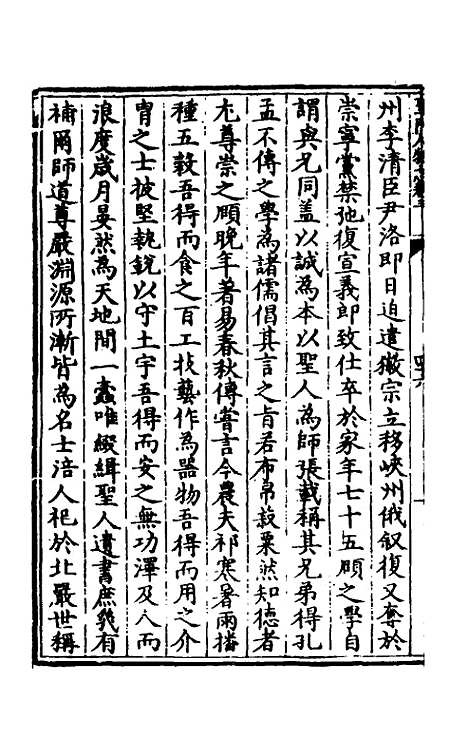 州李清臣尹洛即日迫遣徽宗立移峽州俄叙復又奪於
崇寧黨禁弛復宣義郎致仕卒於家年七十五頤之學自
謂與兄同盖以誠為本以聖人為師張載稱其兄弟得孔
孟不傳之學為諸儒倡其言之旨若布帛菽粟然知德者
尤尊崇之頤晚年著易春秋傳嘗言今農夫祁寒暑雨播
種五穀吾得而食之百工技藝作為器物吾得而用之介
胄之士披堅執銳以守土宇吾得而安之無功澤及人而
浪度歲月晏然為天地間一蠹唯綴緝聖人遺書庶幾有
補爾師道尊嚴淵源所漸皆為名士涪人祀於北巖世稱